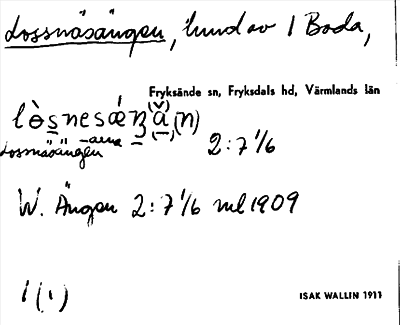 Lossnäsängen, hmd av 1 Boda,
Fryksände sn, Fryksdals hd, Värmlands län
lòsnesǽŋa(n)
Lossnäsängen -arna 2:7 1/6
W. Ängen 2:7 1/6 ml 1909
1 (1)
ISAK WALLIN 1911